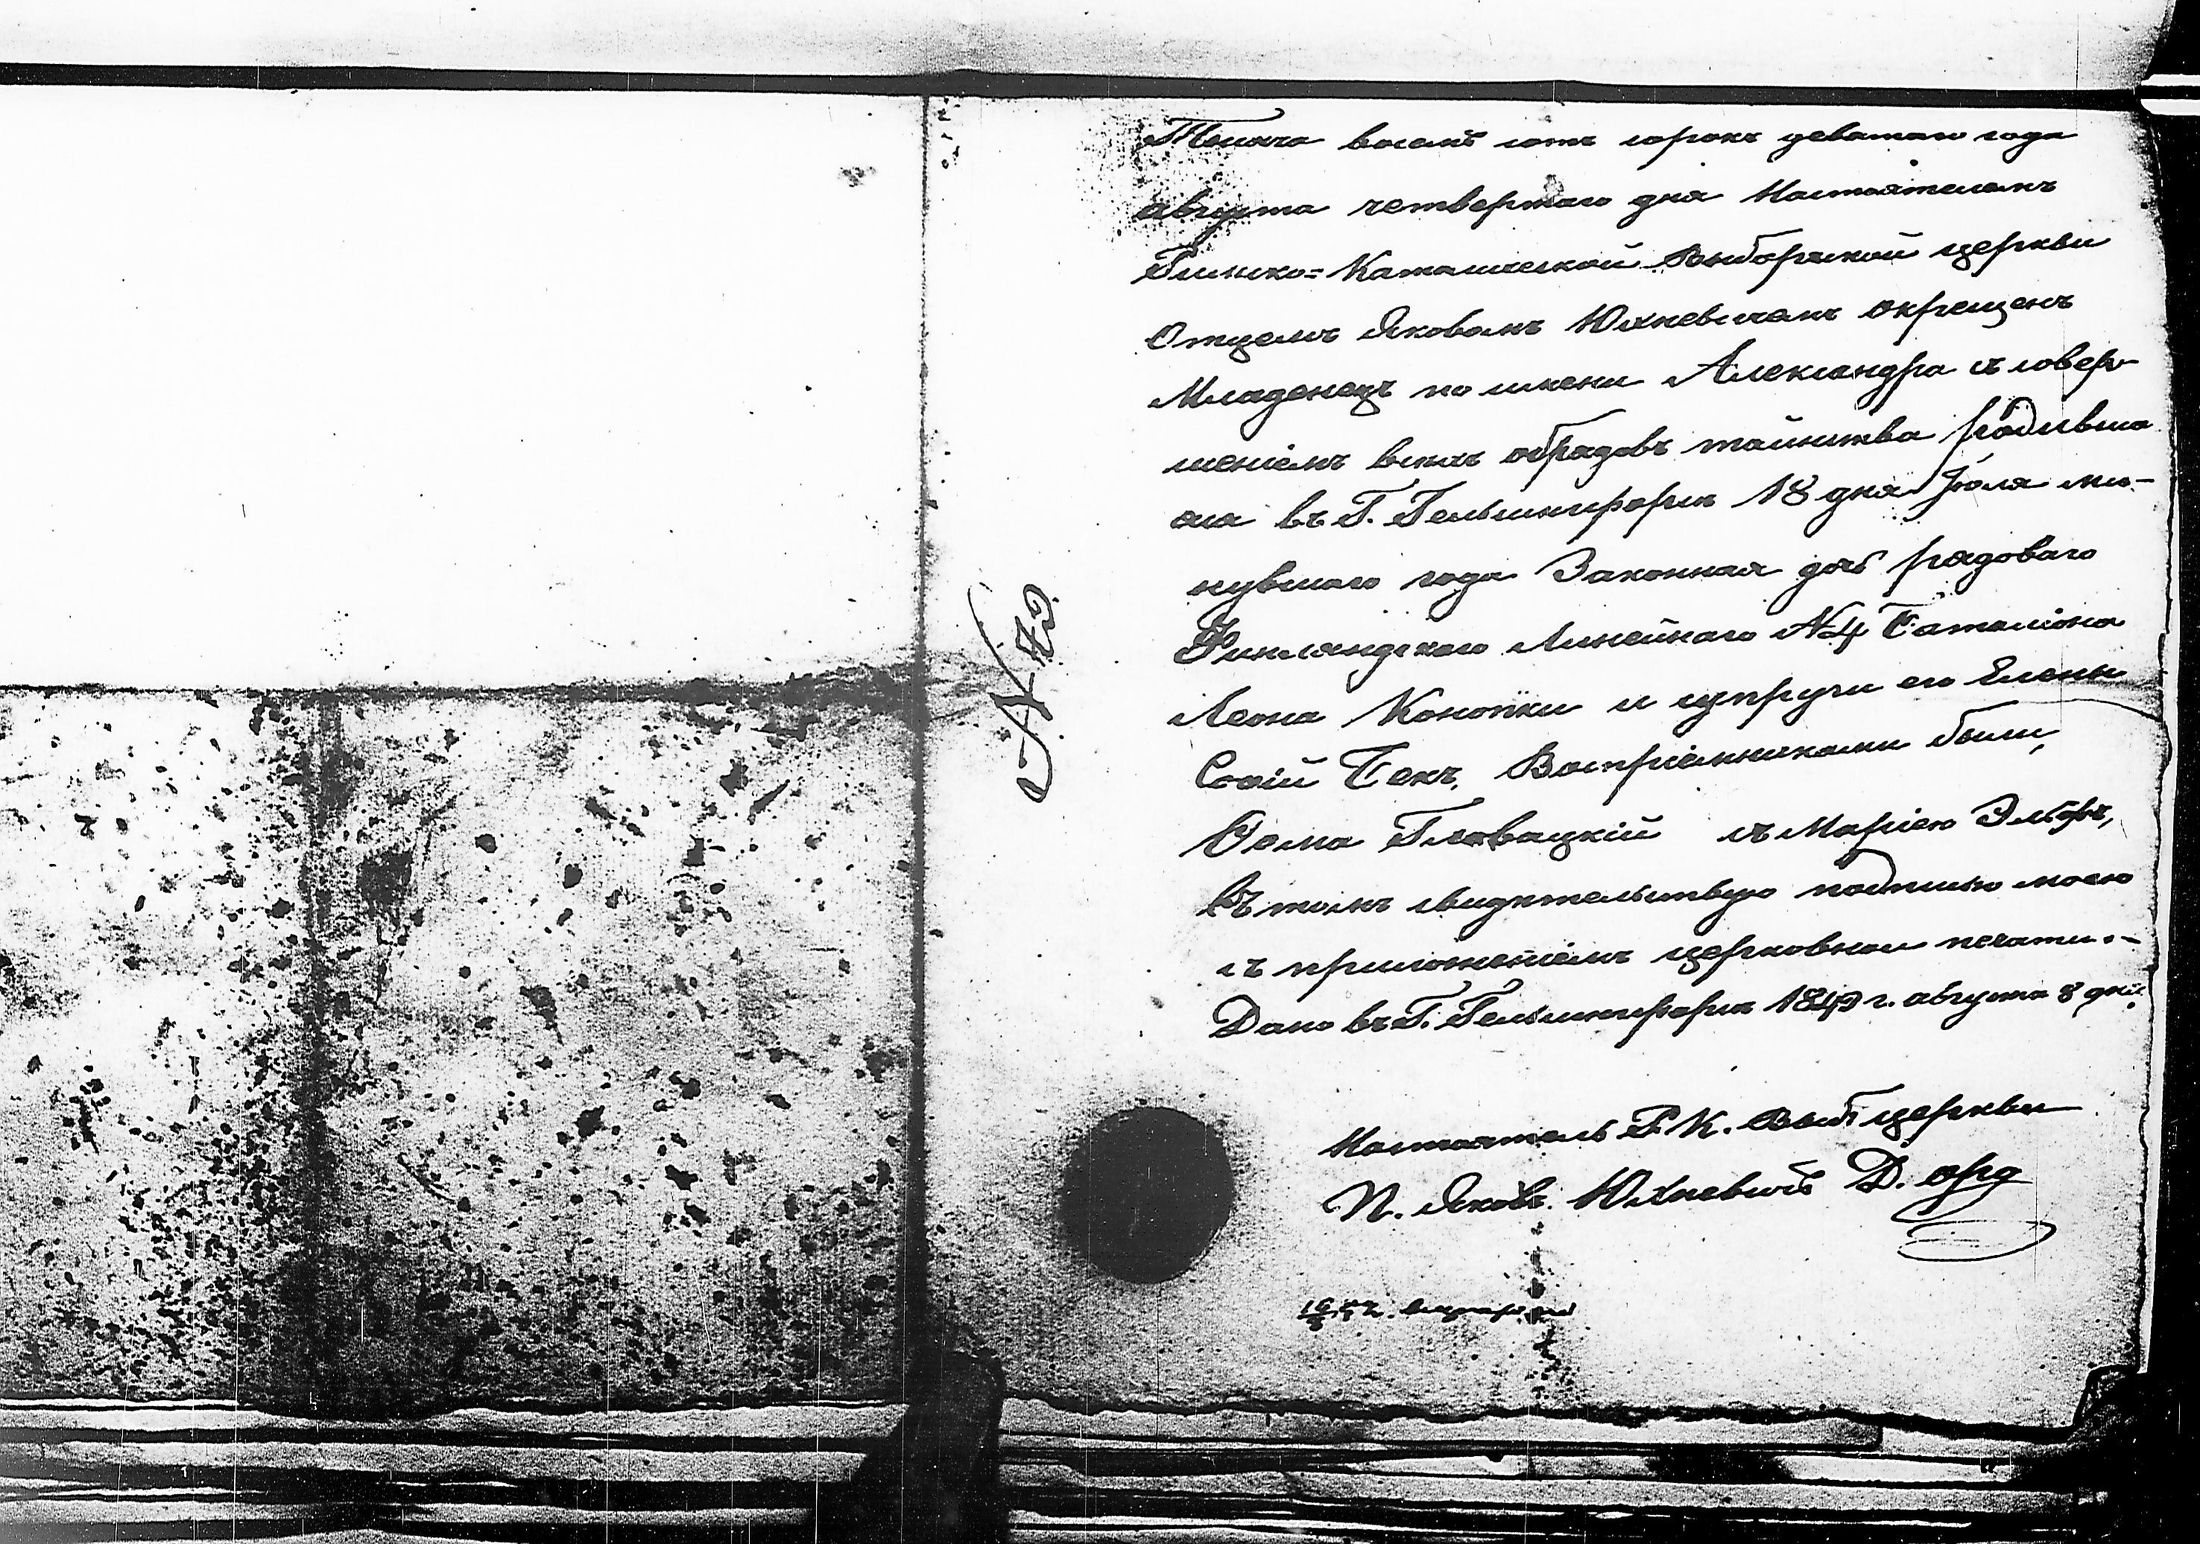 Тысяча восемь сотъ сорокъ девятаго года
августа четвертаго дня Настоятелемъ
Римско=Католической Выборгской церкви
Отцемъ Яковомъ Юхневичемъ окрещенъ
Младенецъ по имени Александра съ совер-
шеніемъ всехъ обрядовъ таинства родивша
аяся въ Г. Гельсингфорсѣ 18 дня Іюля ми-
нувшаго года Законная дочь рядоваго
Финляндскаго Линейнаго №4 Баталіона
Леона Конопки и супруги его Елены
Софій Бекъ. Воспріемниками были,
Ѳома Главацкій съ Маріею
Въ томъ свидѣтельствую подписью моею
съ приложеніемъ церковной печати.–
Дано въ Г. Гельсингфорсѣ 1849 г. августа 8 дня.
Настоятель Р. К. Выб. церкви
П. Яковъ Юхневичъ Д. орд
№ 73